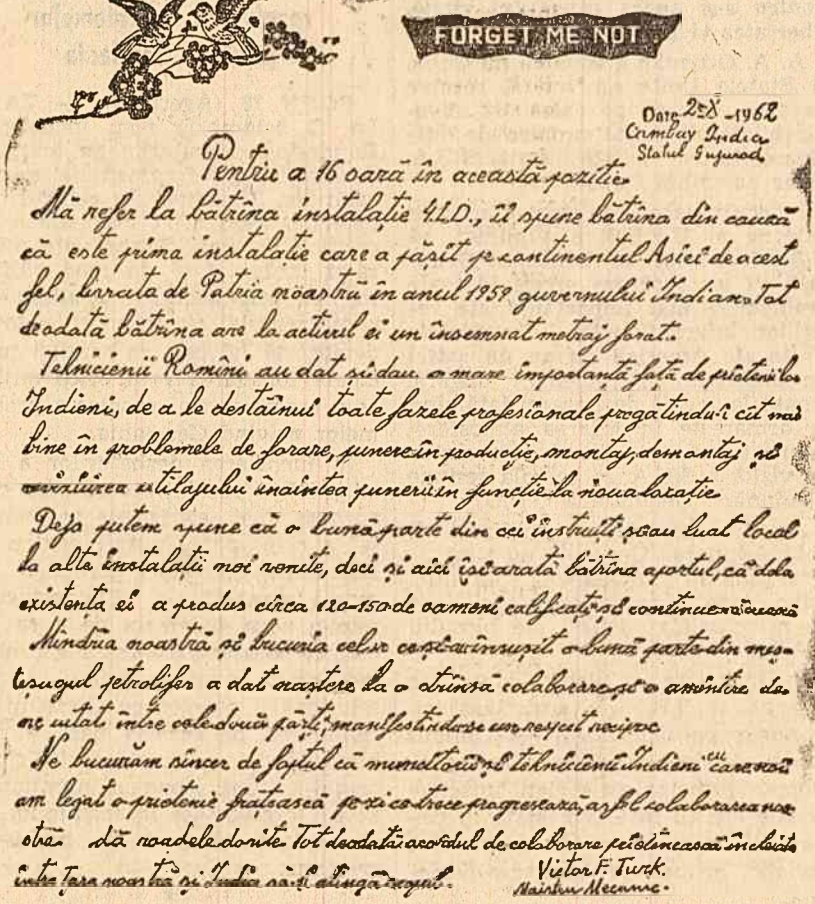 FORGET ME NOT
Date 25 X - 1962
Cambay India
Statul Gujurad
Pentru a 16 oară în această poziție
Mă refer la bătrîna instalație 4.L.D., îi spune bătrîna din cauză
că este prima instalație care a pășit pe continentul Asiei de acest
fel, livrata de Patria noastră în anul 1959 guvernului Indian. Tot
deodată bătrîna are la activul ei un însemnat metraj forat.
Tehnicienii Romîni au dat și dau o mare importanță față de prietenilor
Indieni, de a le destăinui toate fazele profesionale pregătindu-i cît mai
bine în problemele de forare, punere în producție, montaj, demontaj și
utilajului înaintea punerii în funcție la noua locație
Deja putem spune că o bună parte din cei instruiți s-au luat local
la alte instalații noi venite, deci și aici își arată bătrîna aportul, că dela
existența ei a produs circa 120-150 de oameni calificați și continuă
Mîndria noastră și bucuria celor ce și-au însușit o bună parte din meș-
teșugul petrolifer a dat naștere la o strînsă colaborare și o amintire de
ne uitat între cele două părți, manifestîndu-se un respect reciproc
Ne bucurăm sincer de faptul că muncitorii și tehnicienii Indieni cu care noi
am legat o prietenie frățească pe zi ce trece progresează, astfel colaborarea noa-
stră dă roadele dorite Tot deodată acordul de colaborare prietenească încheiat
între țara noastră și India să-și atingă scopul.
Victor F. Turk.
Maistru Mecanic.